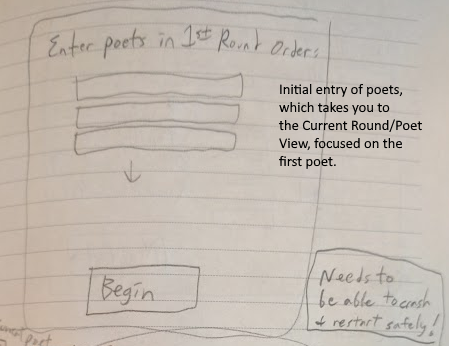 Enter poets in 1st Round Order:
Initial entry of poets,
which takes you to
the Current Round/Poet
View, focused on the
first poet.
Begin
Needs to
be able to crash
+ restart safely!
Poet